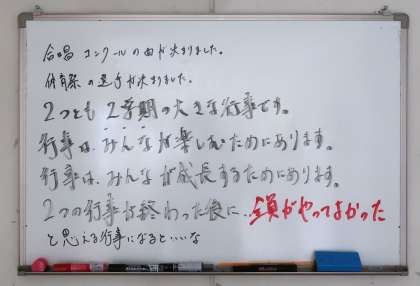 合唱コンクールの曲が決まりました。
体育祭の選手が決まりました。
2つとも2学期の大きな行事です。
行事は、みんなが楽しむためにあります。
行事は、みんなが成長するためにあります。
2つの行事が終わった後に…全員がやってよかった
と思える行事になるといいな